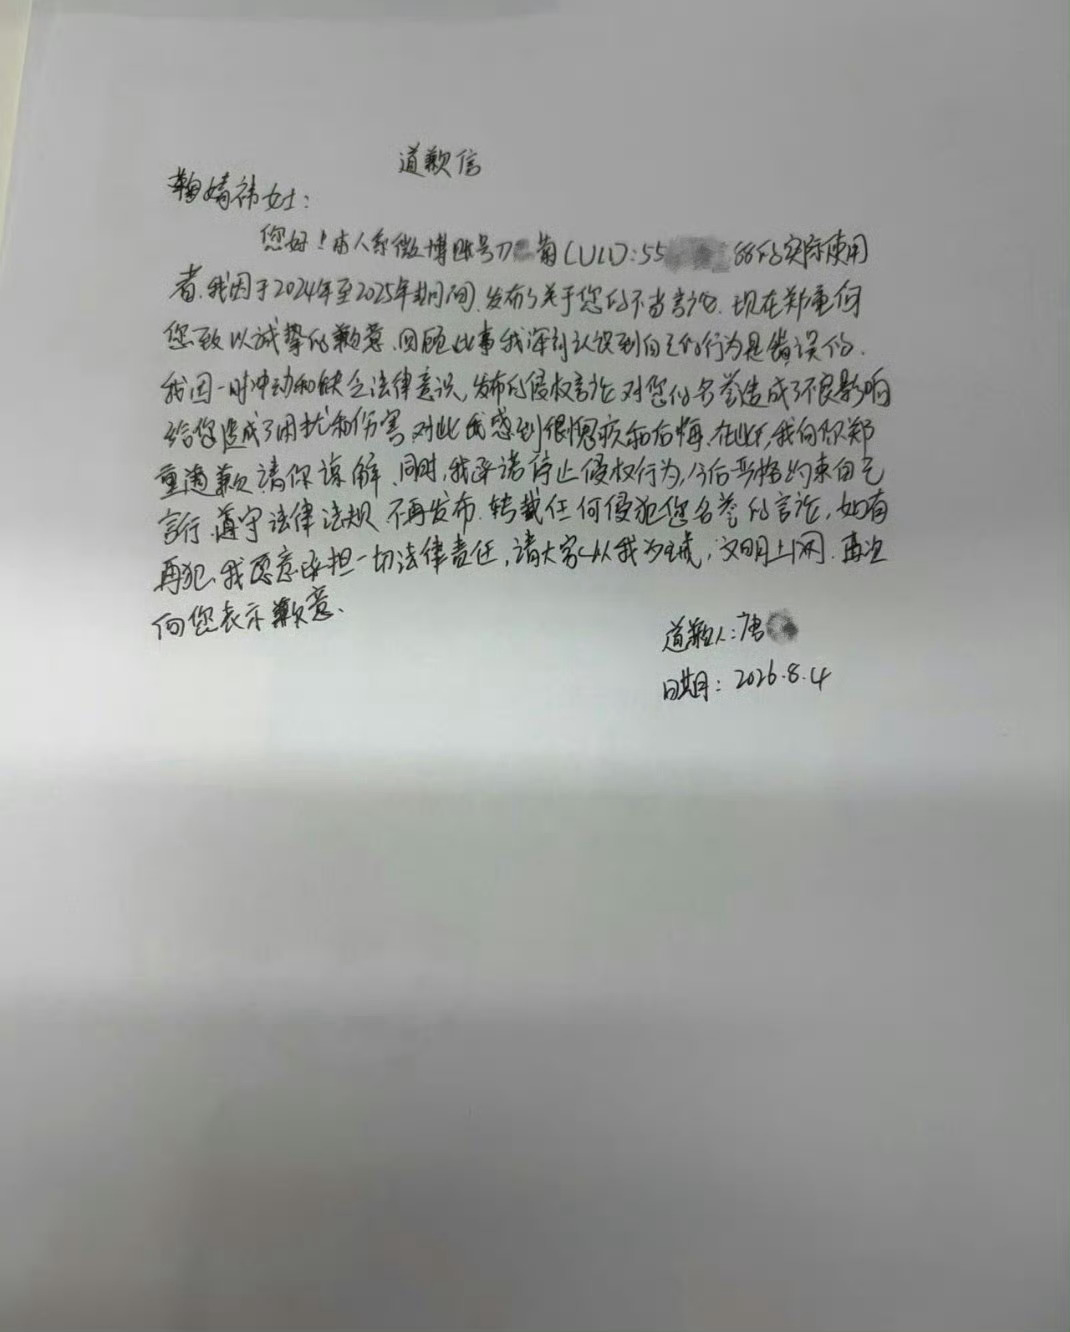 道歉信
鞠婧祎女士：
您好！本人系微博账号刀 菊（UID：55 88的实际使用
者，我因于2024年至2025年期间，发布了关于您的不当言论，现在郑重向
您致以诚挚的歉意，回顾此事我深刻认识到自己的行为是错误的。
我因一时冲动和缺乏法律意识，发布的侵权言论对您的名誉造成了不良影响
给您造成了困扰和伤害，对此我感到很愧疚和后悔，在此，我向你郑
重道歉，请你谅解，同时，我承诺停止侵权行为，今后严格约束自己
言行，遵守法律法规，不再发布、转载任何侵犯您名誉的言论，如有
再犯，我愿意承担一切法律责任，请大家以我为戒，文明上网，再次
向您表示歉意。
道歉人：唐
日期：2026.8.4